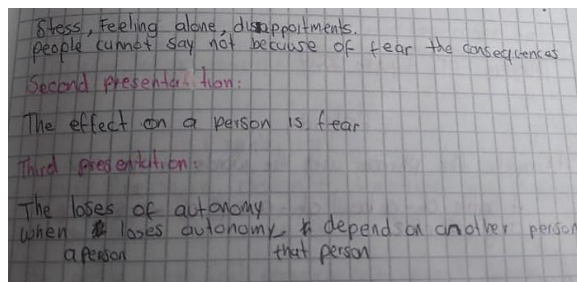 Stess, Feeling alone, disappoitments.
people cannot say not because of fear the consequences
Second presentation:
The effect on a person is fear
Third presentation:
The loses of autonomy
when loses autonomy depend on another person
a person that person